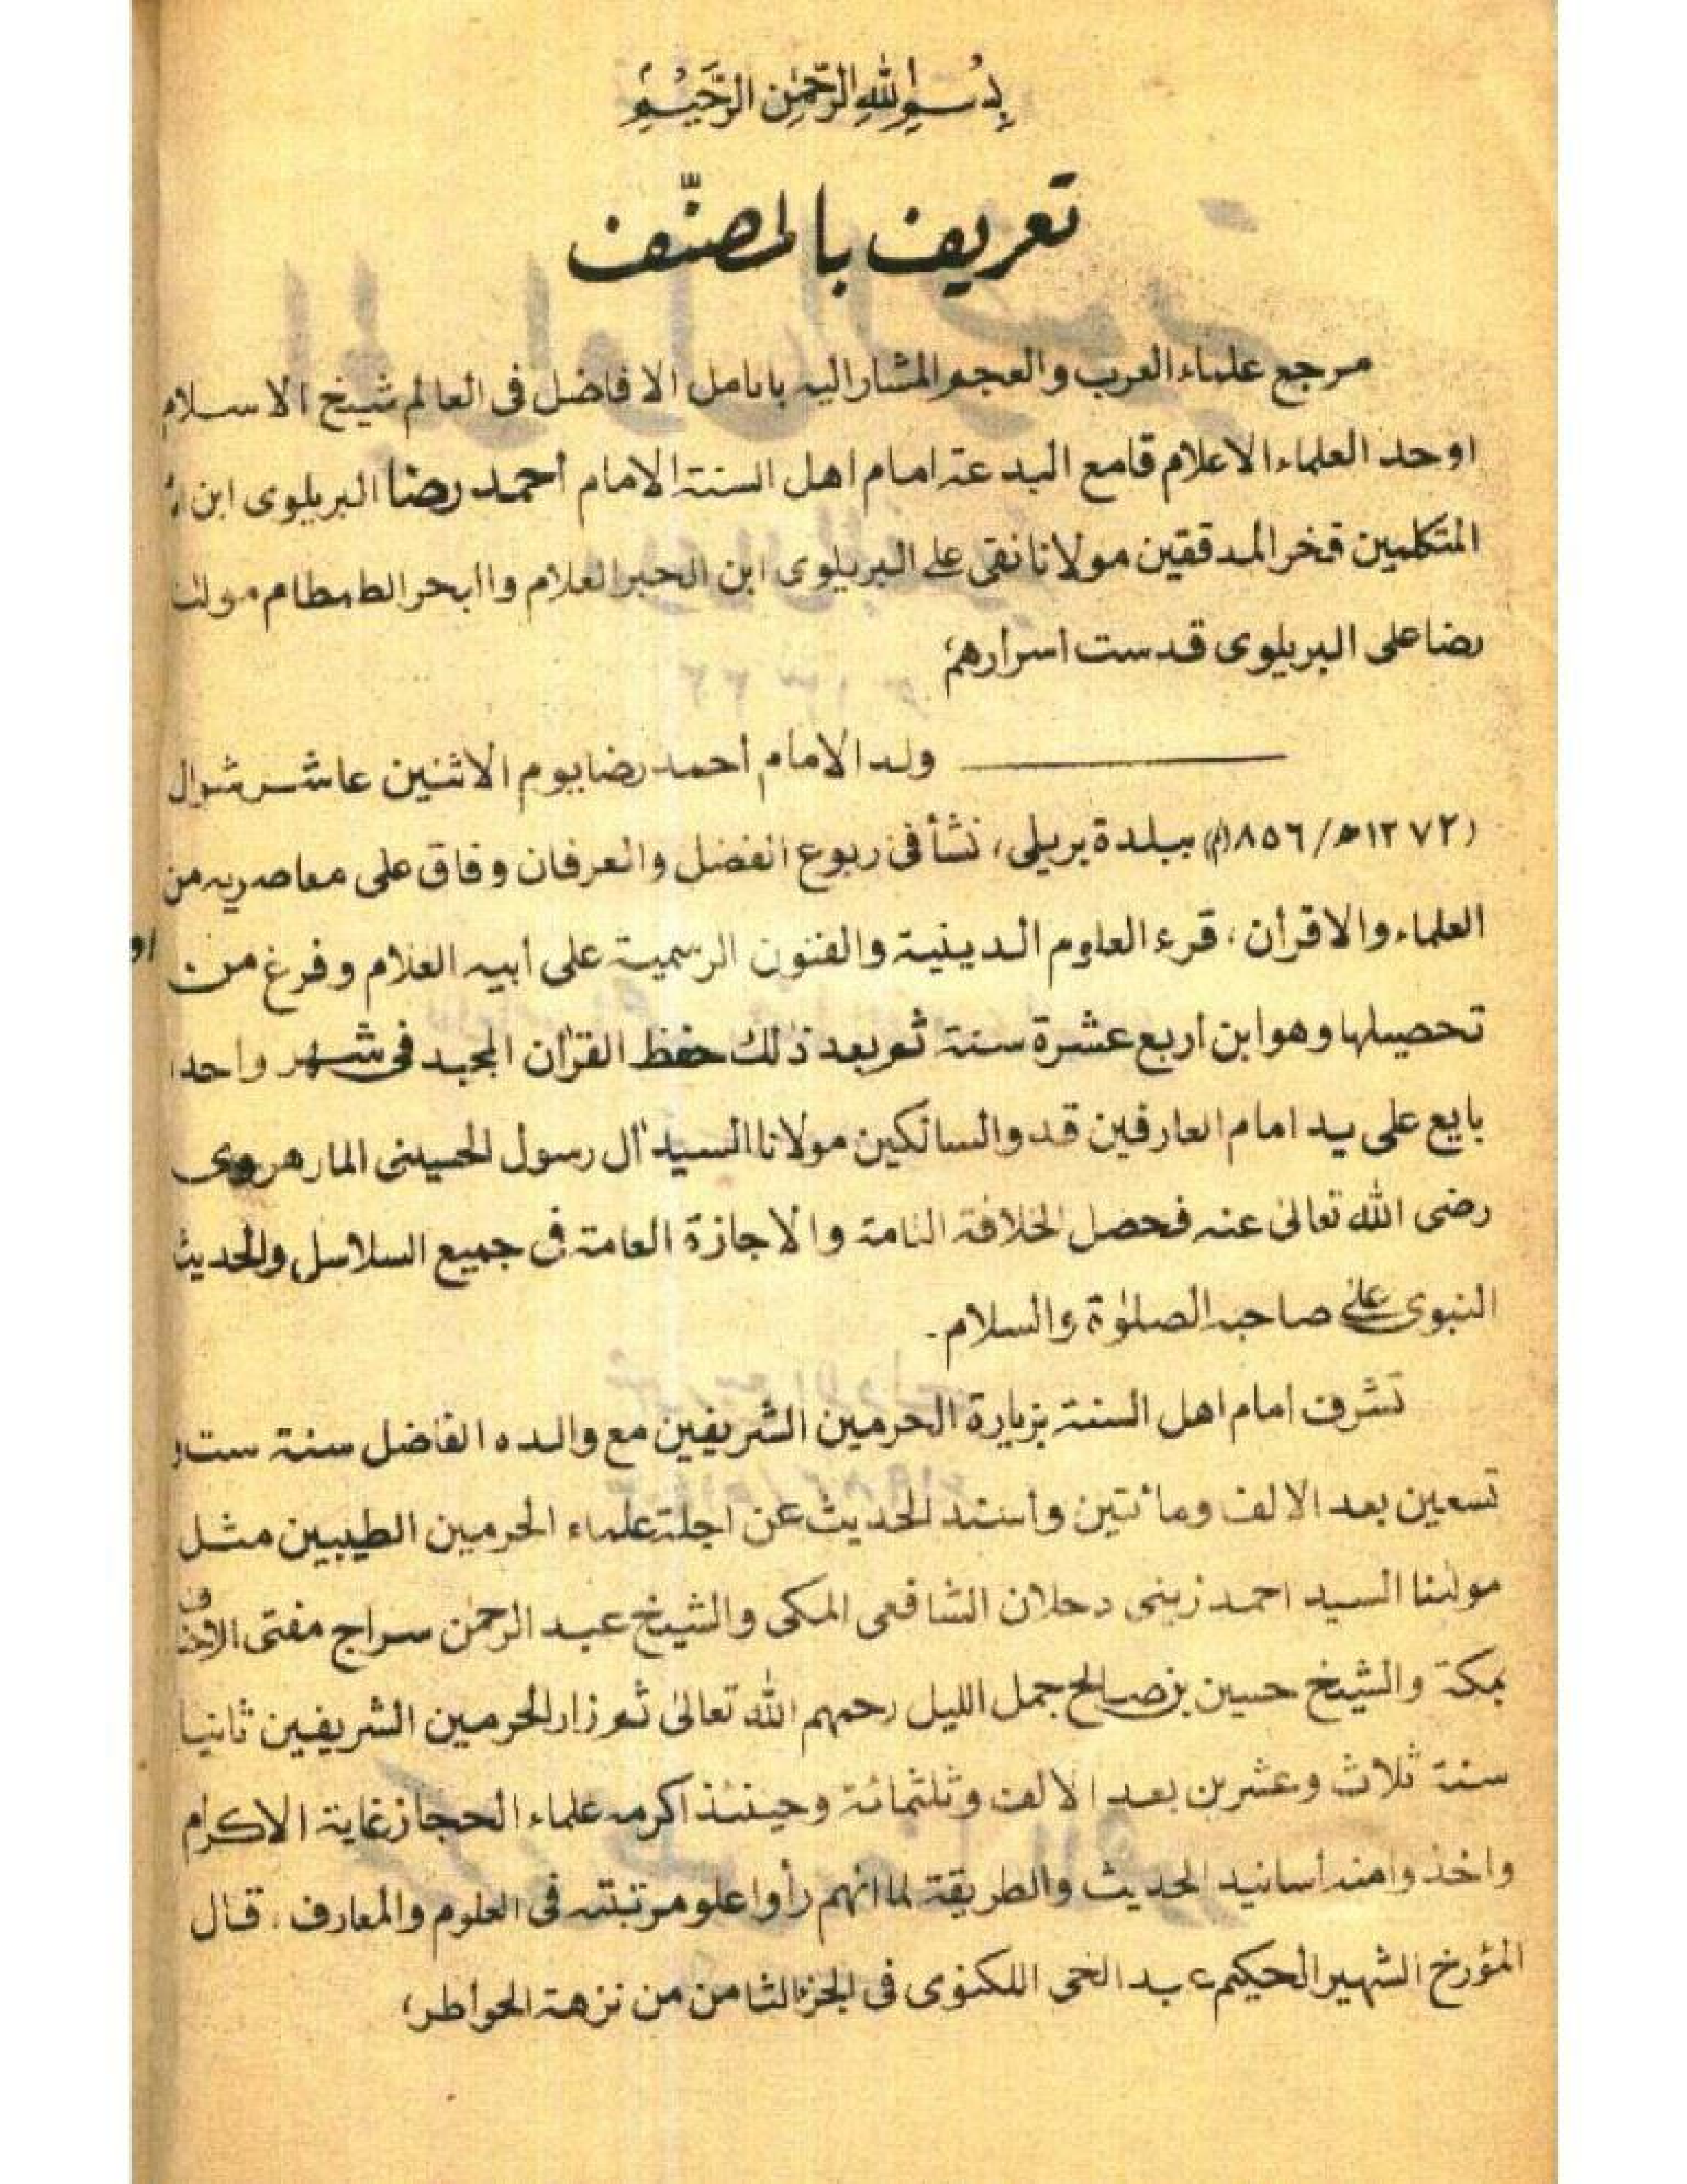 بِسْمِ اللهِ الرَّحْمٰنِ الرَّحِيْمِ
تعريف بالمصنّف
مرجع علماء العرب والعجم المشار اليه بانامل الافاضل فى العالم شيخ الاسلام
اوحد العلماء الاعلام قامع البدعة امام اهل السنة الامام احمد رضا البريلوى ابن
المتكلمين فخر المدققين مولانا نقى على البريلوى ابن الحبر العلام والبحر الطمطام مولٰنا
رضا على البريلوى قدست اسرارهم؛
ولد الامام أحمد رضا يوم الاثنين عاشر شوال
(١٢٧٢ھ/١٨٥٦م) ببلدة بريلى، نشأ فى ربوع الفضل والعرفان وفاق على معاصريه من
العلماء والاقرأن، قرء العلوم الدينية والفنون الرسمية على أبيه العلام وفرغ من
تحصيلها وهو ابن أربع عشرة سنة ثم بعد ذٰلك حفظ القرٰان المجيد فى شهر واحد،
بايع على يد امام العارفين قدوالسالكين مولانا السيد أل رسول الحسينى المارهروى
رضى الله تعالىٰ عنه فحصل الخلافة التامة والاجازة العامة فى جميع السلاسل والحديث
النبوى علىٰ صاحبه الصلوٰة والسلام۔
تشرف امام اهل السنة بزيارة الحرمين الشريفين مع والده الفاضل سنة ست و
تسعين بعد الالف ومأئتين وأسند الحديث عن اجلة علماء الحرمين الطيبين مثل
مولٰنا السيد احمد زينى دحلان الشافعى المكى والشيخ عبد الرحمٰن سراج مفتى الاحناف
بمكة والشيخ حسين بن صالح جمل الليل رحمهم الله تعالىٰ ثم زار الحرمين الشريفين ثانيا
سنة ثلاث وعشرين بعد الالف وثلثمائة وحينئذ اكرمه علماء الحجاز غاية الاكرام
واخذ وامنه أسانيد الحديث والطريقة لما انهم رأوا علو مرتبته فى العلوم والمعارف، قال
المؤرخ الشهير الحكيم عبد الحى اللكنوى فى الجزء الثامن من نزهة الخواطر؛